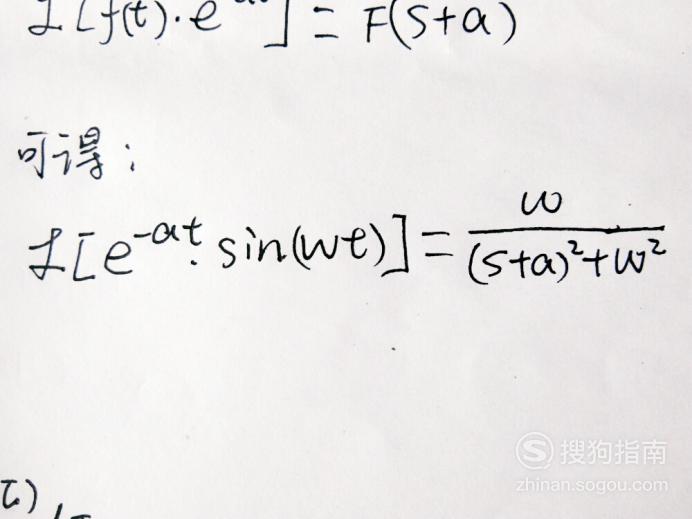 ℒ[f(t)·e^{-αt}] = F(s+a)
可得：
ℒ[e^{-αt}·sin(ωt)] = \frac{ω}{(s+a)^2+ω^2}
τ)
S 搜狗指南
zhinan.sogou.com